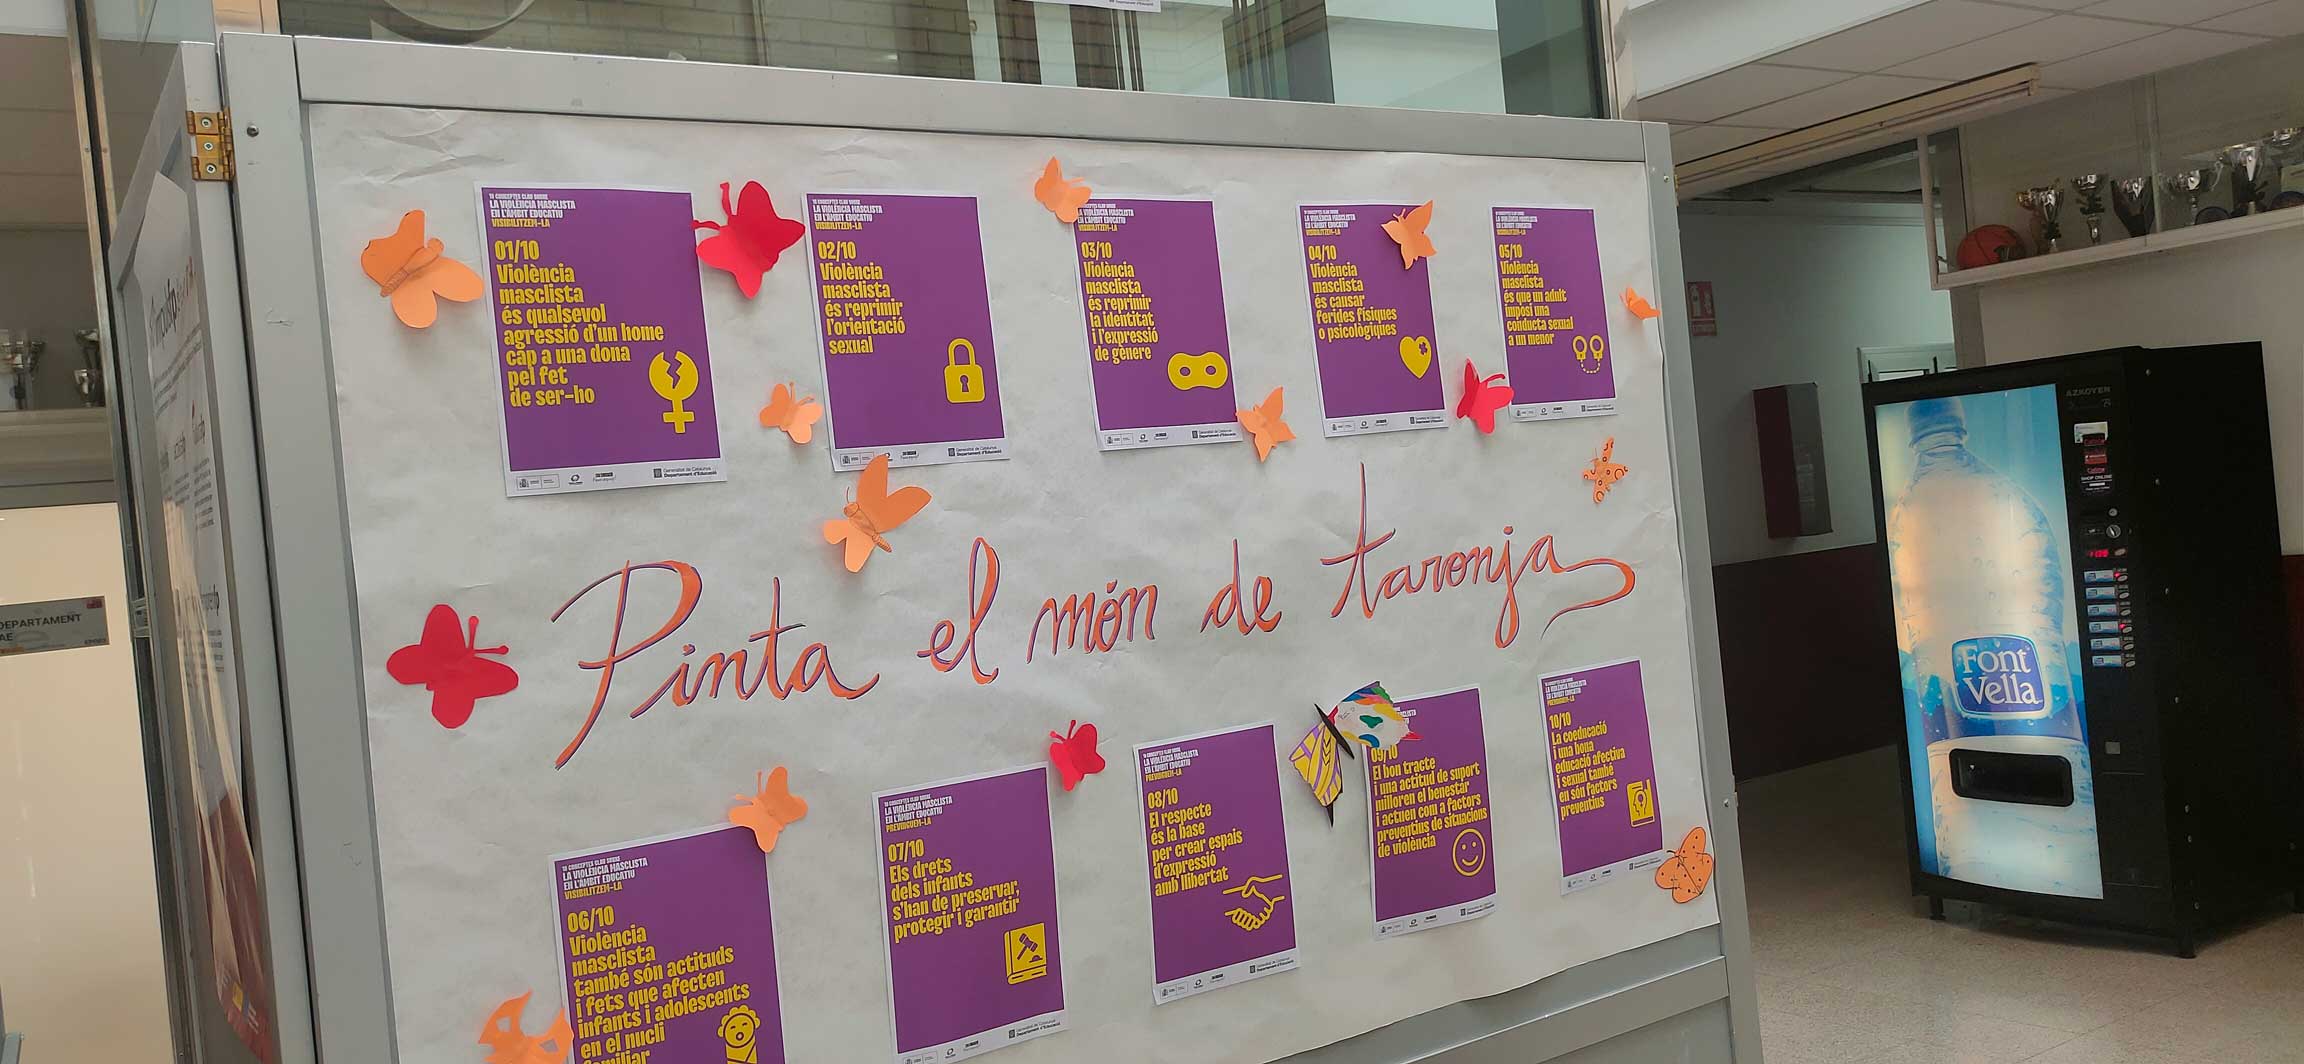 10 CONCEPTES CLAU SOBRE
LA VIOLÈNCIA MASCLISTA
EN L'ÀMBIT EDUCATIU
VISIBILITZEM-LA
01/10
Violència
masclista
és qualsevol
agressió d'un home
cap a una dona
pel fet
de ser-ho
Generalitat de Catalunya
Departament d'Educació
10 CONCEPTES CLAU SOBRE
LA VIOLÈNCIA MASCLISTA
EN L'ÀMBIT EDUCATIU
VISIBILITZEM-LA
02/10
Violència
masclista
és reprimir
l'orientació
sexual
Generalitat de Catalunya
Departament d'Educació
CONCEPTES CLAU SOBRE
VIOLÈNCIA MASCLISTA
EN L'ÀMBIT EDUCATIU
VISIBILITZEM-LA
03/10
Violència
masclista
és reprimir
la identitat
i l'expressió
de gènere
Generalitat de Catalunya
Departament d'Educació
10 CONCEPTES CLAU SOBRE
LA VIOLÈNCIA MASCLISTA
EN L'ÀMBIT EDUCATIU
VISIBILITZEM-LA
04/10
Violència
masclista
és causar
ferides físiques
o psicològiques
Generalitat de Catalunya
Departament d'Educació
10 CONCEPTES CLAU SOBRE
LA VIOLÈNCIA MASCLISTA
EN L'ÀMBIT EDUCATIU
VISIBILITZEM-LA
05/10
Violència
masclista
és que un adult
imposi una
conducta sexual
a un menor
Generalitat de Catalunya
Departament d'Educació
Pinta el món de taronja
10 CONCEPTES CLAU SOBRE
LA VIOLÈNCIA MASCLISTA
EN L'ÀMBIT EDUCATIU
VISIBILITZEM-LA
06/10
Violència
masclista
també són actituds
i fets que afecten
infants i adolescents
en el nucli
familiar
10 CONCEPTES CLAU SOBRE
LA VIOLÈNCIA MASCLISTA
EN L'ÀMBIT EDUCATIU
PREVINGUEM-LA
07/10
Els drets
dels infants
s'han de preservar,
protegir i garantir
Generalitat de Catalunya
Departament d'Educació
10 CONCEPTES CLAU SOBRE
LA VIOLÈNCIA MASCLISTA
EN L'ÀMBIT EDUCATIU
PREVINGUEM-LA
08/10
El respecte
és la base
per crear espais
d'expressió
amb llibertat
Generalitat de Catalunya
Departament d'Educació
09/10
El bon tracte
i una actitud de suport
milloren el benestar
i actuen com a factors
preventius de situacions
de violència
Generalitat de Catalunya
Departament d'Educació
10 CONCEPTES CLAU SOBRE
LA VIOLÈNCIA MASCLISTA
EN L'ÀMBIT EDUCATIU
PREVINGUEM-LA
10/10
La coeducació
i una bona
educació afectiva
i sexual també
en són factors
preventius
DEPARTAMENT
AE
AZKOYEN
Font
Vella